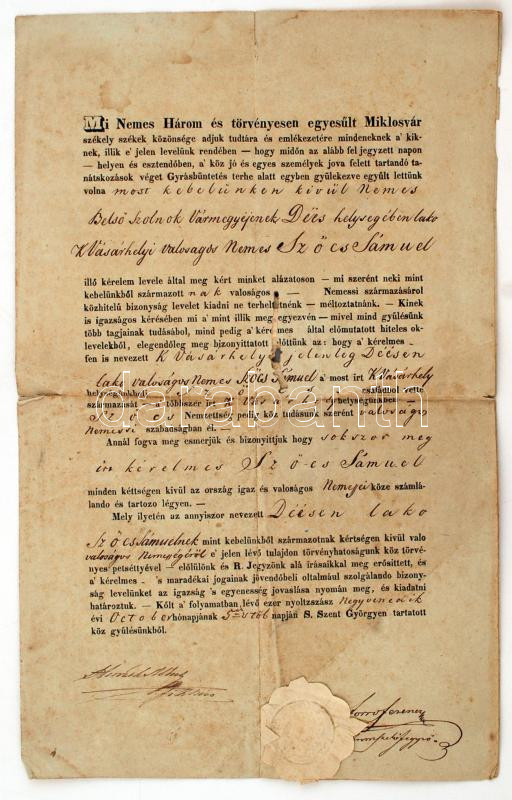 Mi Nemes Három és törvényesen egyesült Miklosvár
székely székek közönsége adjuk tudtára és emlékezetére mindeneknek a' kik-
nek, illik e' jelen levelünk rendében — hogy midőn az alább fel jegyzett napon
— helyen és esztendőben, a' köz jó és egyes személyek jova felett tartandó ta-
nátskozások véget Gyrásbüntetés terhe alatt egyben gyülekezve együtt lettünk
volna most kebelünken kivül Nemes
Belső Szolnok Vármegyéjenek Dées helységében lako
K Vásárhelyi valoságos Nemes Szőcs Sámuel
illő kérelem levele által meg kért minket alázatoson — mi szerént neki mint
kebelünkből származott nak valoságos — Nemessi származásárol
közhitelü bizonyság levelet kiadni ne terheltetnénk — méltoztatnánk. — Kinek
is igazságos kérésében mi a' mint meg egyezvén — mivel mind gyülésünk
több tagjainak tudásábol, mind pedig a' kérelmes által előmutatott hiteles ok-
levelekből, elegendőleg meg bizonyittatott előttünk az: hogy a' kérelmes
fen is nevezett K Vásárhelyi jelenleg Déésen
lako valoságos Nemes Szőcs Sámuel a most irt K Vásárhely
családbol vette
származását — többszer helységünkbeli —
Szőcs Nemzettség pedig köz tudásunk szerént valoságos
Nemessi szabadságban él. —
Annál fogva meg esmerjük és bizonyittjuk hogy sokszor meg
irt kérelmes Sző-cs Sámuel
minden kéttségen kivül az ország igaz és valoságos Nemejei köze számlá-
lando és tartozo légyen. —
Mely ilyetén az annyiszor nevezett Déésen lako
Szőcs Sámuelnek mint kebelünkből származotnak kértségen kivül valo
valoságos Nemességéről e' jelen lévő tulajdon törvényhatoságunk köz törvé-
nyes petsétyével — előlülönk és R. Jegyzönk alá irásaikkal meg erősittett, és
a' kérelmes — 's maradékai jogainak jövendőbeli oltalmául szolgálando bizony-
ság levelünket az igaság 's egyenesség jovaslása nyomán meg, és kiadatni
határoztuk. — Költ a' folyamatban lévő ezer nyoltzszáz Negyvenedik
évi October hónapjának 5dik napján S. Szent Györgyen tartatott
köz gyülésünkből.
Ferencz
darabanth